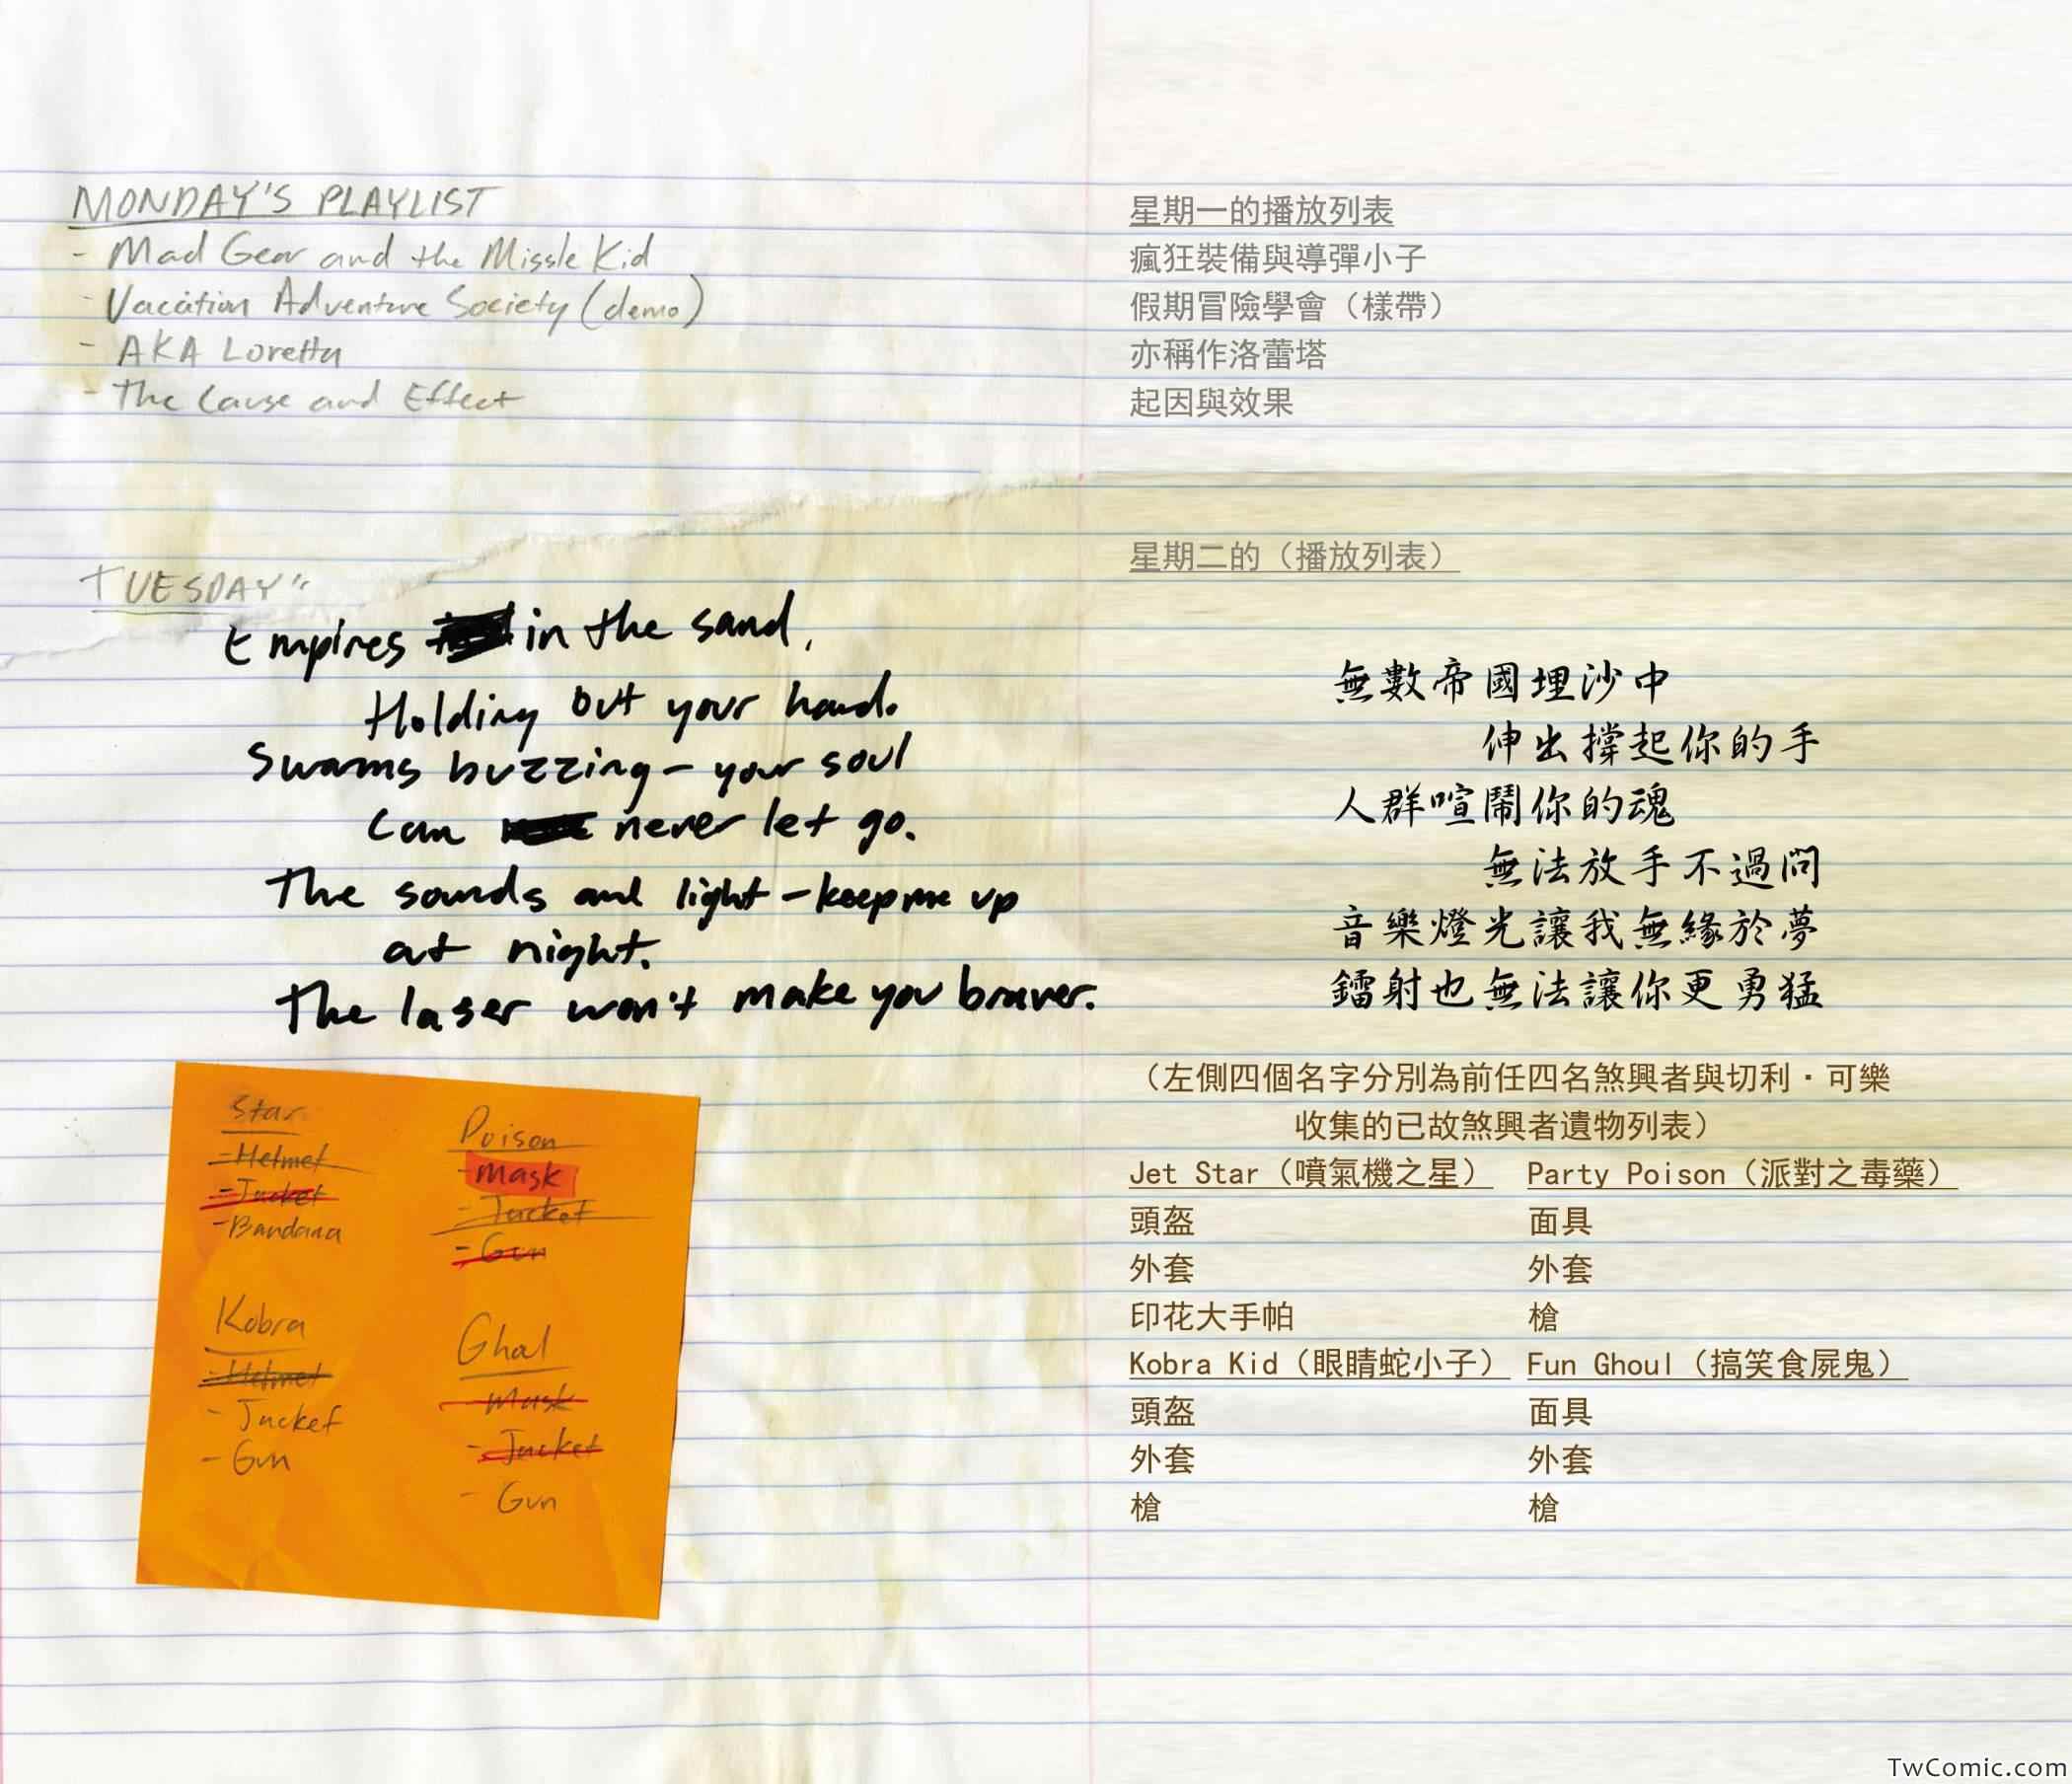 MONDAY'S PLAYLIST
- Mad Gear and the Missle Kid
- Vacation Adventure Society (demo)
- AKA Loretta
- The Cause and Effect
TUESDAY"
Empires in the sand,
Holding out your hand.
Swarms buzzing - your soul
can never let go.
The sounds and light - keep me up
at night.
The laser won't make you braver.
Star
- Helmet
- Jacket
- Bandana
Poison
- Mask
- Jacket
- Gun
Kobra
- Helmet
- Jacket
- Gun
Ghoul
- Mask
- Jacket
- Gun
星期一的播放列表
瘋狂裝備與導彈小子
假期冒險學會（樣帶）
亦稱作洛蕾塔
起因與效果
星期二的（播放列表）
無數帝國埋沙中
伸出撐起你的手
人群喧鬧你的魂
無法放手不過問
音樂燈光讓我無緣於夢
鐳射也無法讓你更勇猛
（左側四個名字分別為前任四名煞興者與切利·可樂
收集的已故煞興者遺物列表）
Jet Star（噴氣機之星） Party Poison（派對之毒藥）
頭盔 面具
外套 外套
印花大手帕 槍
Kobra Kid（眼睛蛇小子） Fun Ghoul（搞笑食屍鬼）
頭盔 面具
外套 外套
槍 槍
TwComic.com